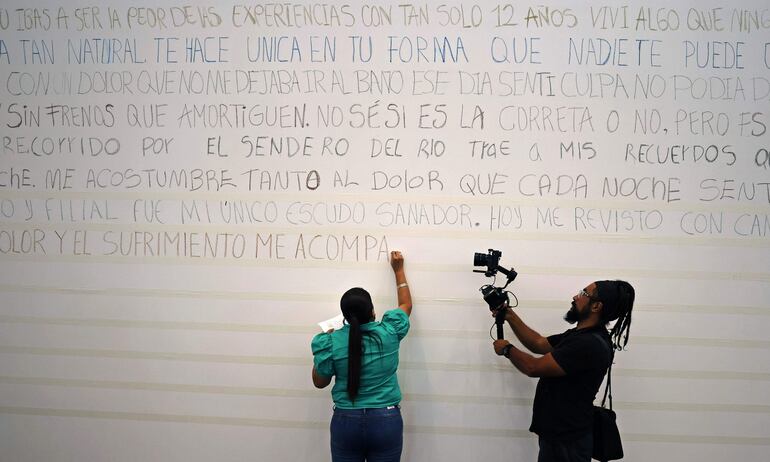 IBAS A SER LA PEOR DE LAS EXPERIENCIAS CON TAN SOLO 12 AÑOS VIVI ALGO QUE NING
A TAN NATURAL. TE HACE UNICA EN TU FORMA QUE NADIE TE PUEDE
CON UN DOLOR QUE NO ME DEJABA IR AL BAÑO ESE DIA SENTI CULPA NO PODIA D
SIN FRENOS QUE AMORTIGUEN. NO SÉ SI ES LA CORRETA O NO, PERO ES
RECORRIDO POR EL SENDERO DEL RIO TRAE A MIS RECUERDOS
CHE. ME ACOSTUMBRE TANTO AL DOLOR QUE CADA NOCHE SENT
O Y FILIAL FUE MI ÚNICO ESCUDO SANADOR. HOY ME REVISTO CON CAN
OLOR Y EL SUFRIMIENTO ME ACOMPA